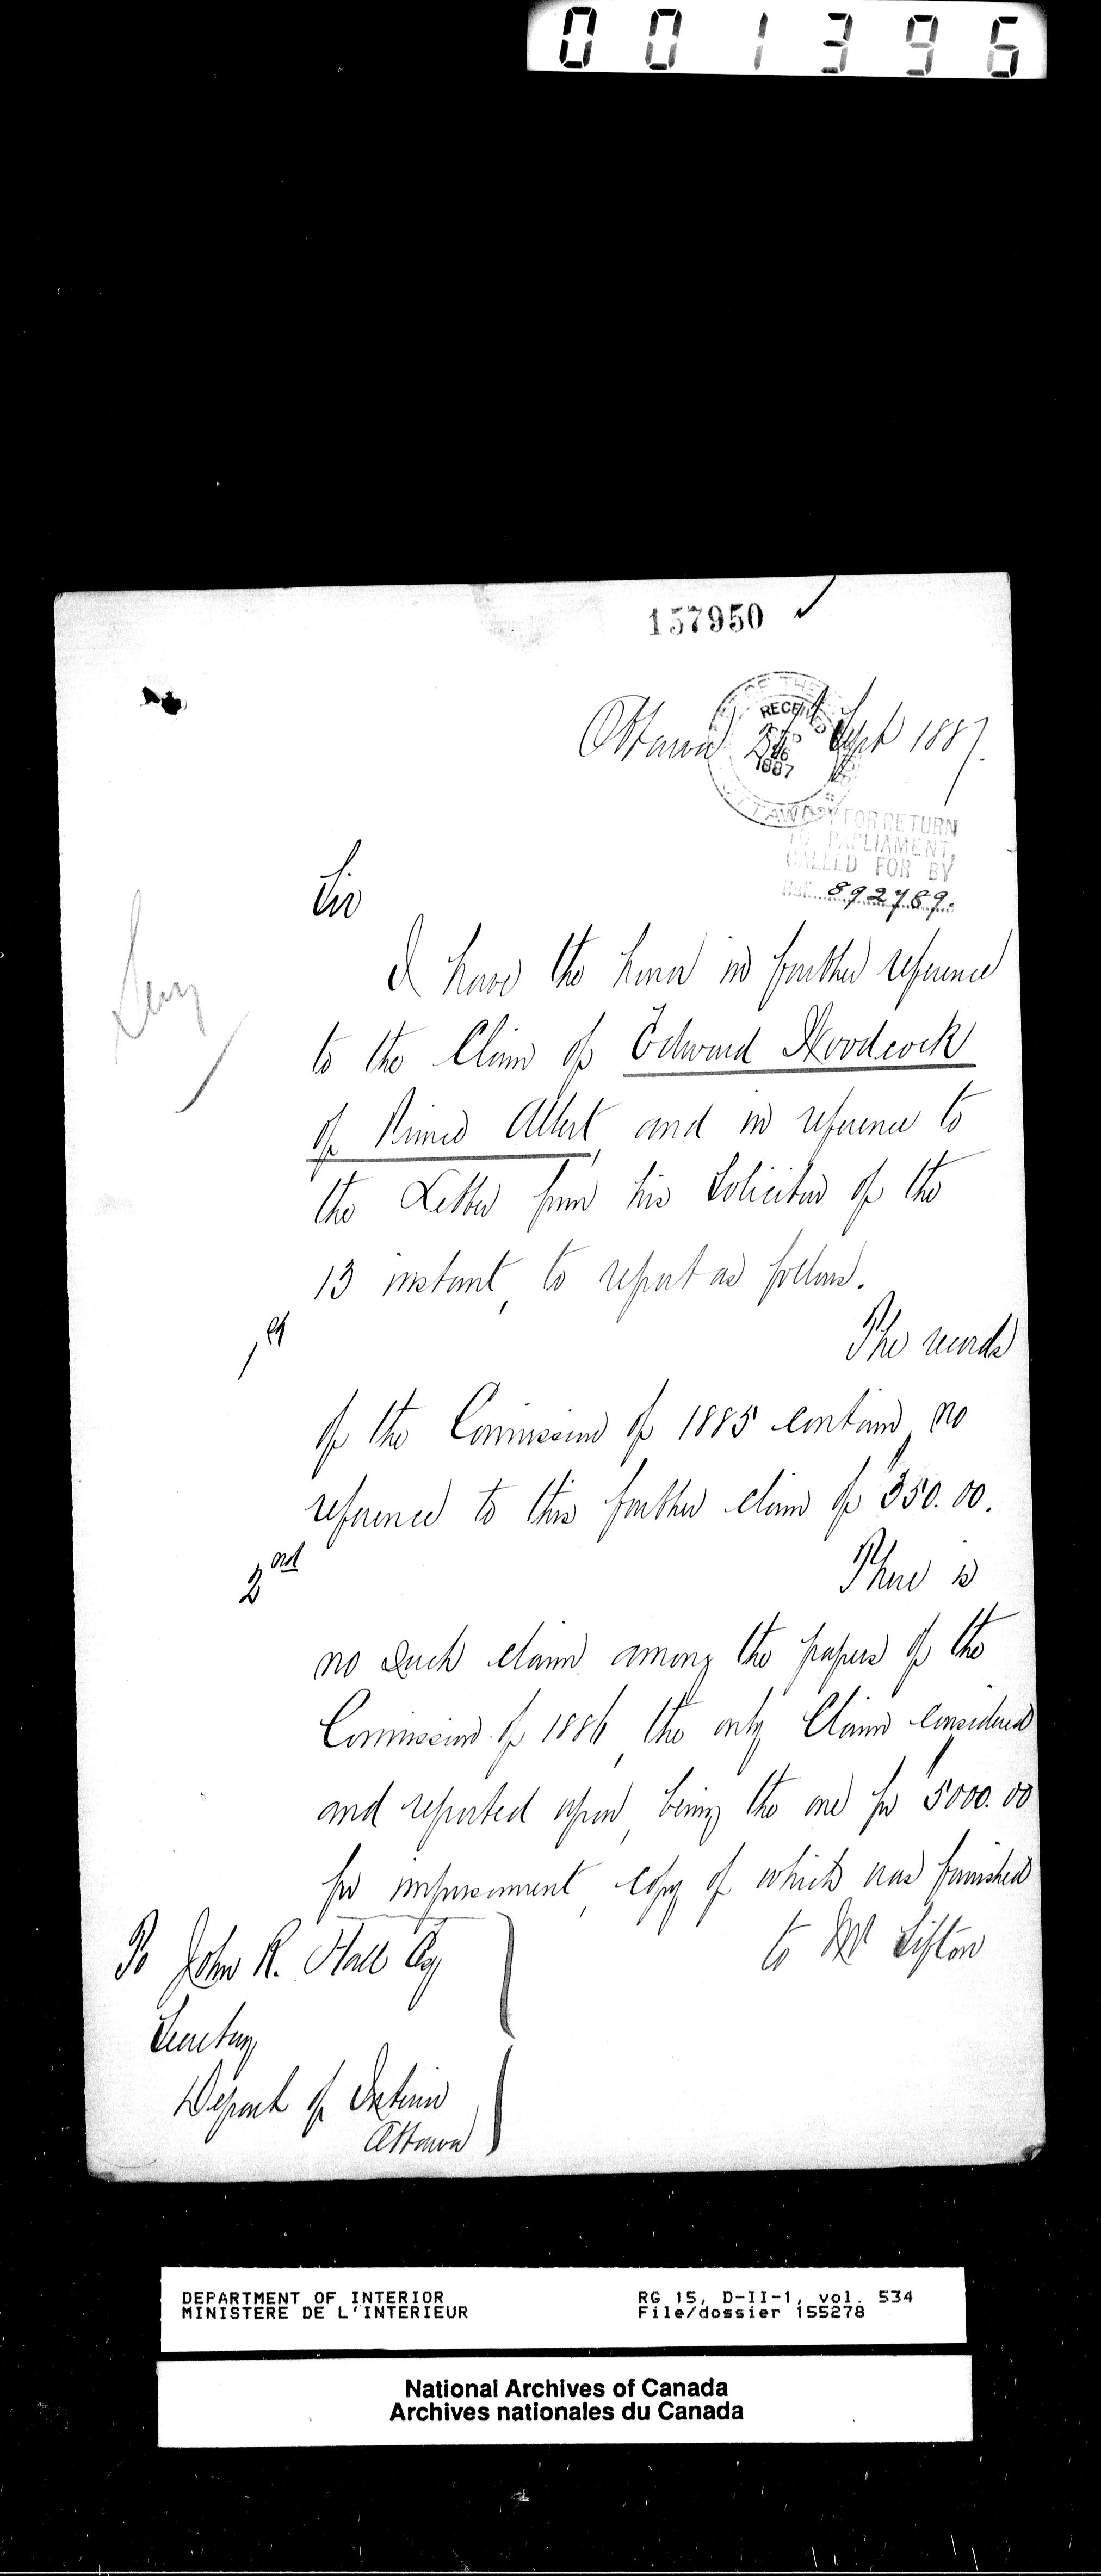 001396
157950
Ottawa Sept 1887.
RECEIVED
1887
OTTAWA
FOR RETURN
TO PARLIAMENT,
CALLED FOR BY
892789.
Sir
I have the honor in further reference
to the Claim of Edward Woodcock
of Prince Albert, and in reference to
the Letter from his Solicitor of the
13 instant, to report as follows.
1st
The records
of the Commission of 1885 contain no
reference to this further claim of $350.00.
2nd
There is
no such claim among the papers of the
Commission of 1886, the only Claim considered
and reported upon, being the one for $5000.00
for imprisonment, copy of which was furnished
to Mr Sifton
To John R. Hall Esq
Secretary
Depart of Interior
Ottawa
DEPARTMENT OF INTERIOR
MINISTERE DE L'INTERIEUR
RG 15, D-II-1, vol. 534
File/dossier 155278
National Archives of Canada
Archives nationales du Canada